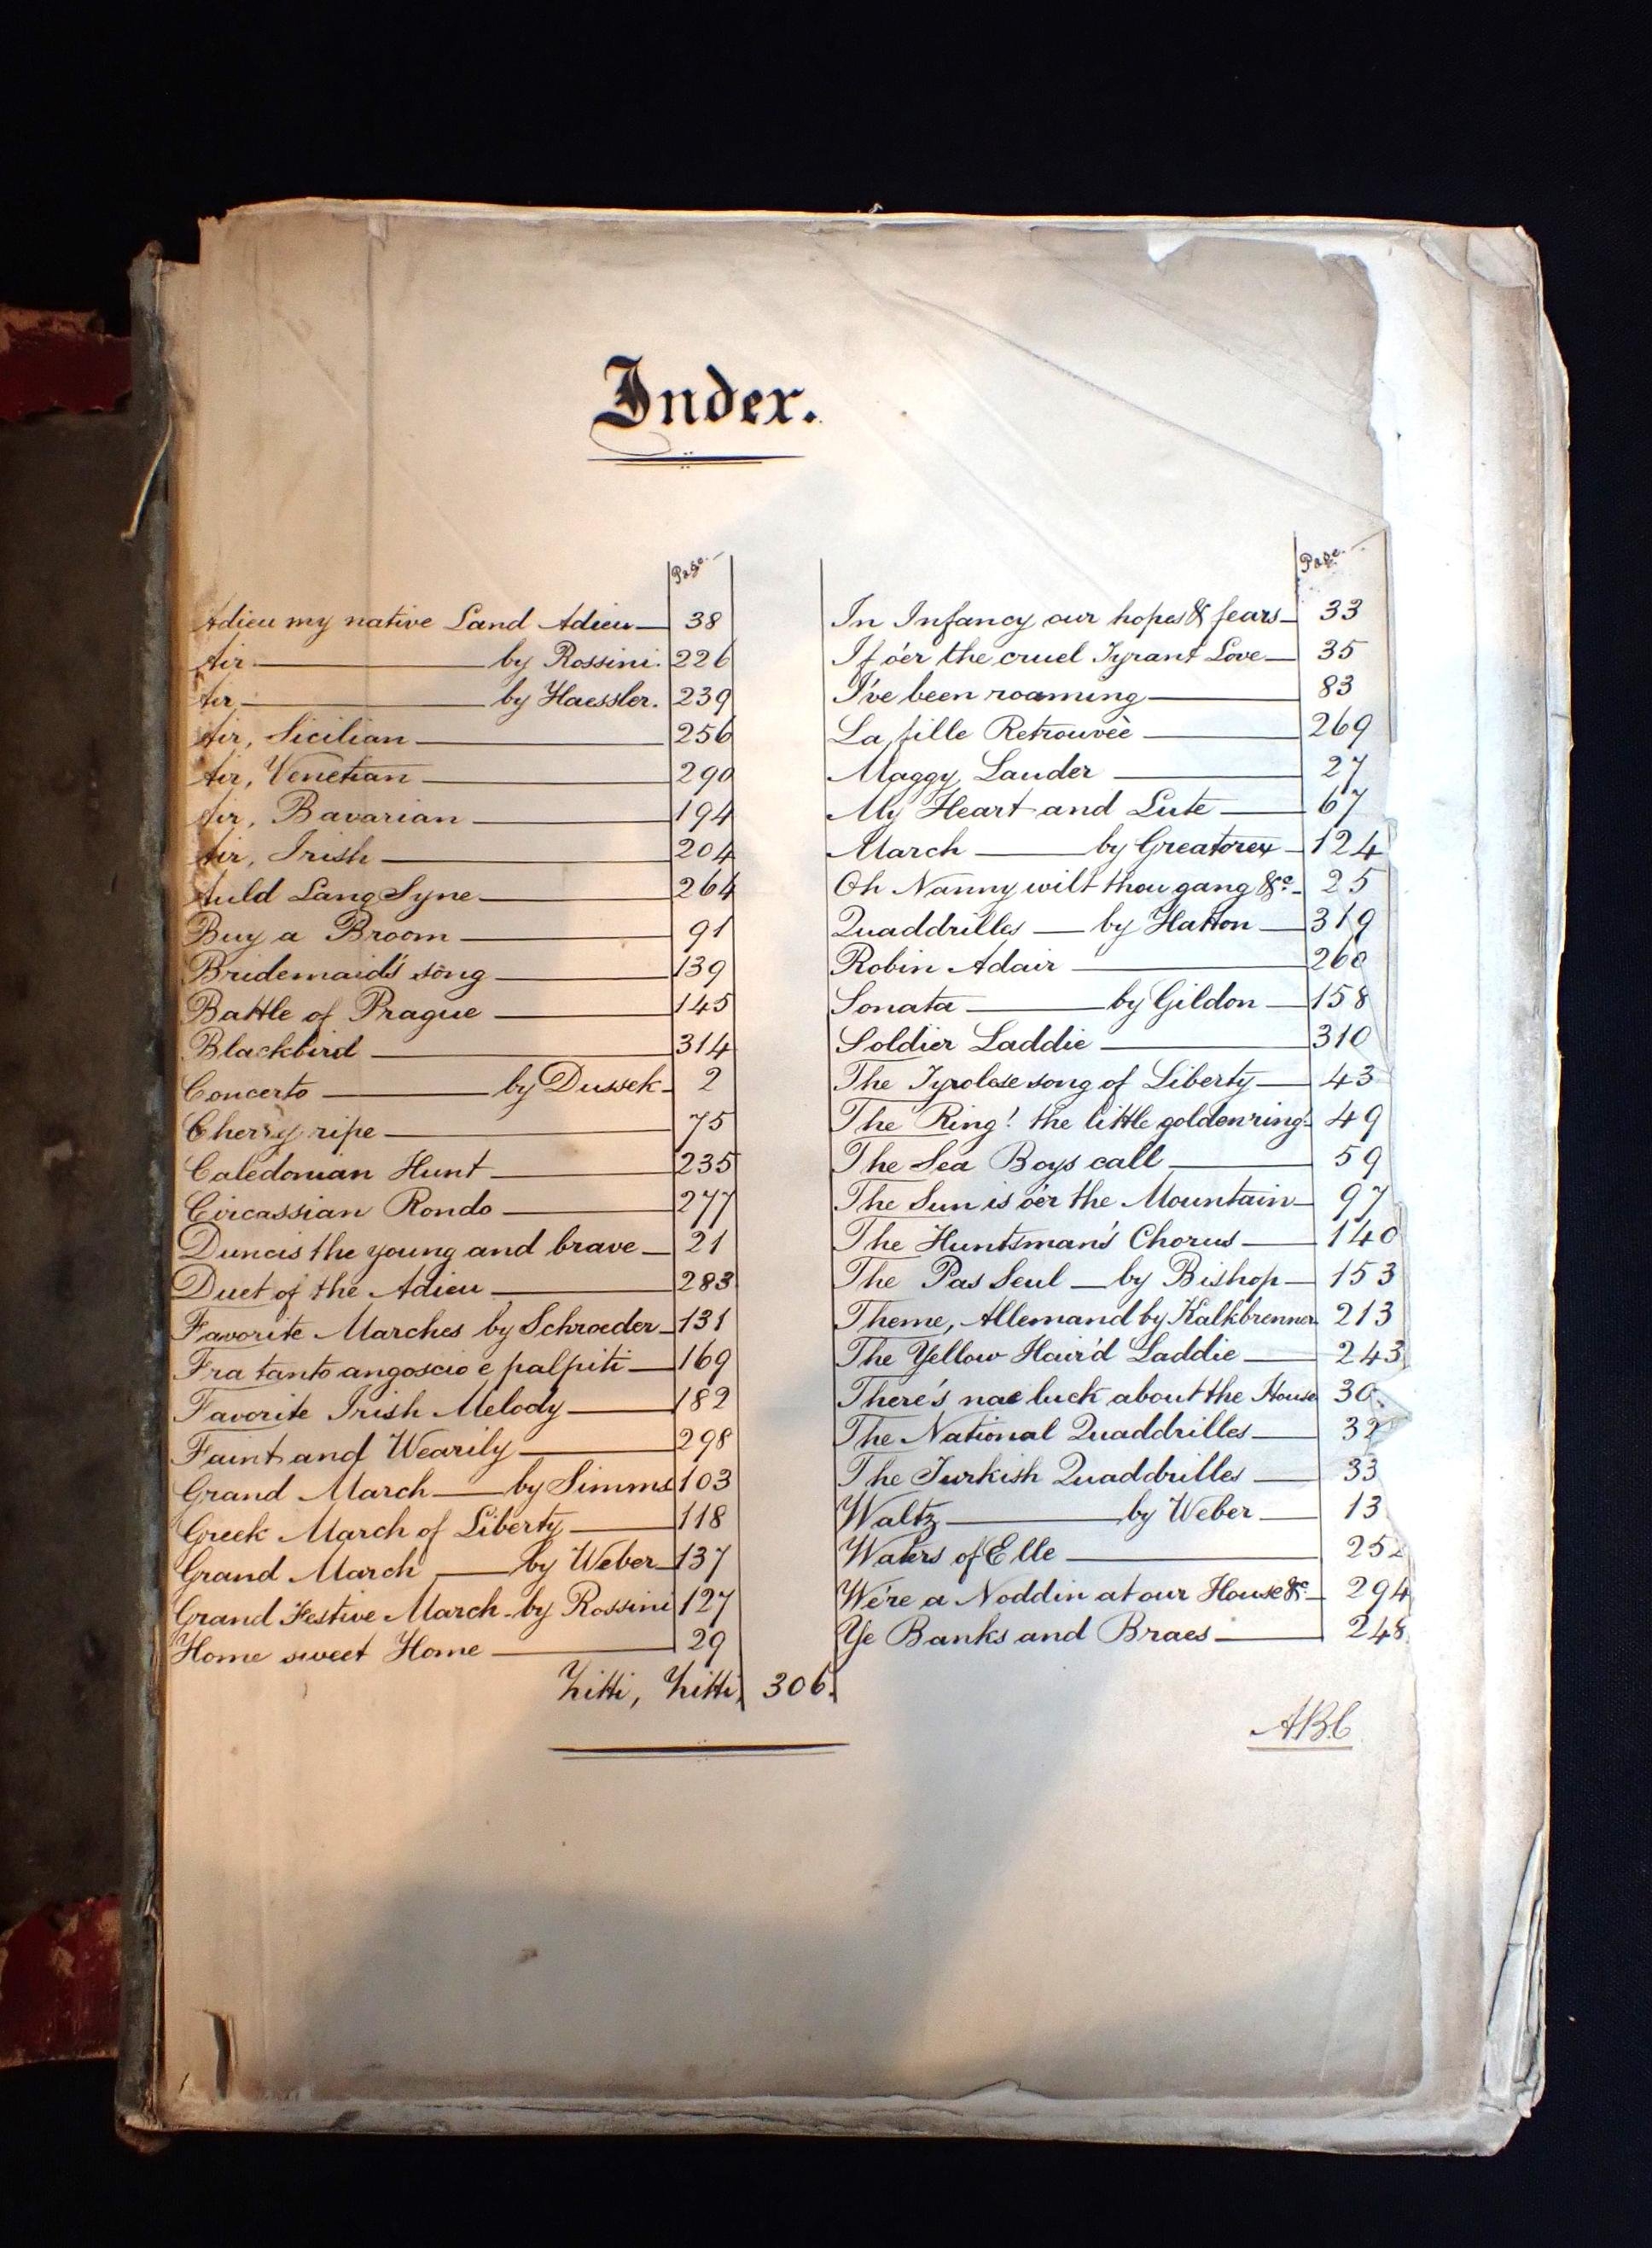 Index.
Page
Adieu my native Land Adieu 38
Air by Rossini. 226
Air by Haessler. 239
Air, Sicilian 256
Air, Venetian 290
Air, Bavarian 194
Air, Irish 204
Auld Lang Syne 264
Buy a Broom 91
Bridemaid's song 139
Battle of Prague 145
Blackbird 314
Concerto by Dussek 2
Cherry ripe 75
Caledonian Hunt 235
Circassian Rondo 277
Duncis the young and brave 21
Duet of the Adieu 283
Favorite Marches by Schroeder 131
Fra tanto angoscio e palpiti 169
Favorite Irish Melody 182
Faint and Wearily 298
Grand March by Simms 103
Greek March of Liberty 118
Grand March by Weber 137
Grand Festive March by Rossini 127
Home sweet Home 29
Page
In Infancy our hopes & fears 33
If o'er the cruel Tyrant Love 35
I've been roaming 83
La fille Retrouvèe 269
Maggy Lauder 27
My Heart and Lute 67
March by Greatorex 124
Oh Nanny wilt thou gang &c. 25
Quaddrilles by Hatton 319
Robin Adair 260
Sonata by Gildon 158
Soldier Laddie 310
The Tyrolese song of Liberty 43
The Ring! the little golden ring! 49
The Sea Boys call 59
The Sun is o'er the Mountain 97
The Huntsman's Chorus 140
The Pas Seul by Bishop 153
Theme, Allemand by Kalkbrenner 213
The Yellow Hair'd Laddie 243
There's nae luck about the House 30
The National Quaddrilles 32
The Turkish Quaddrilles 33
Waltz by Weber 13
Waters of Elle 252
We're a Noddin at our House &c. 294
Ye Banks and Braes 248
Zitti, Zitti, 306.
A.B.C